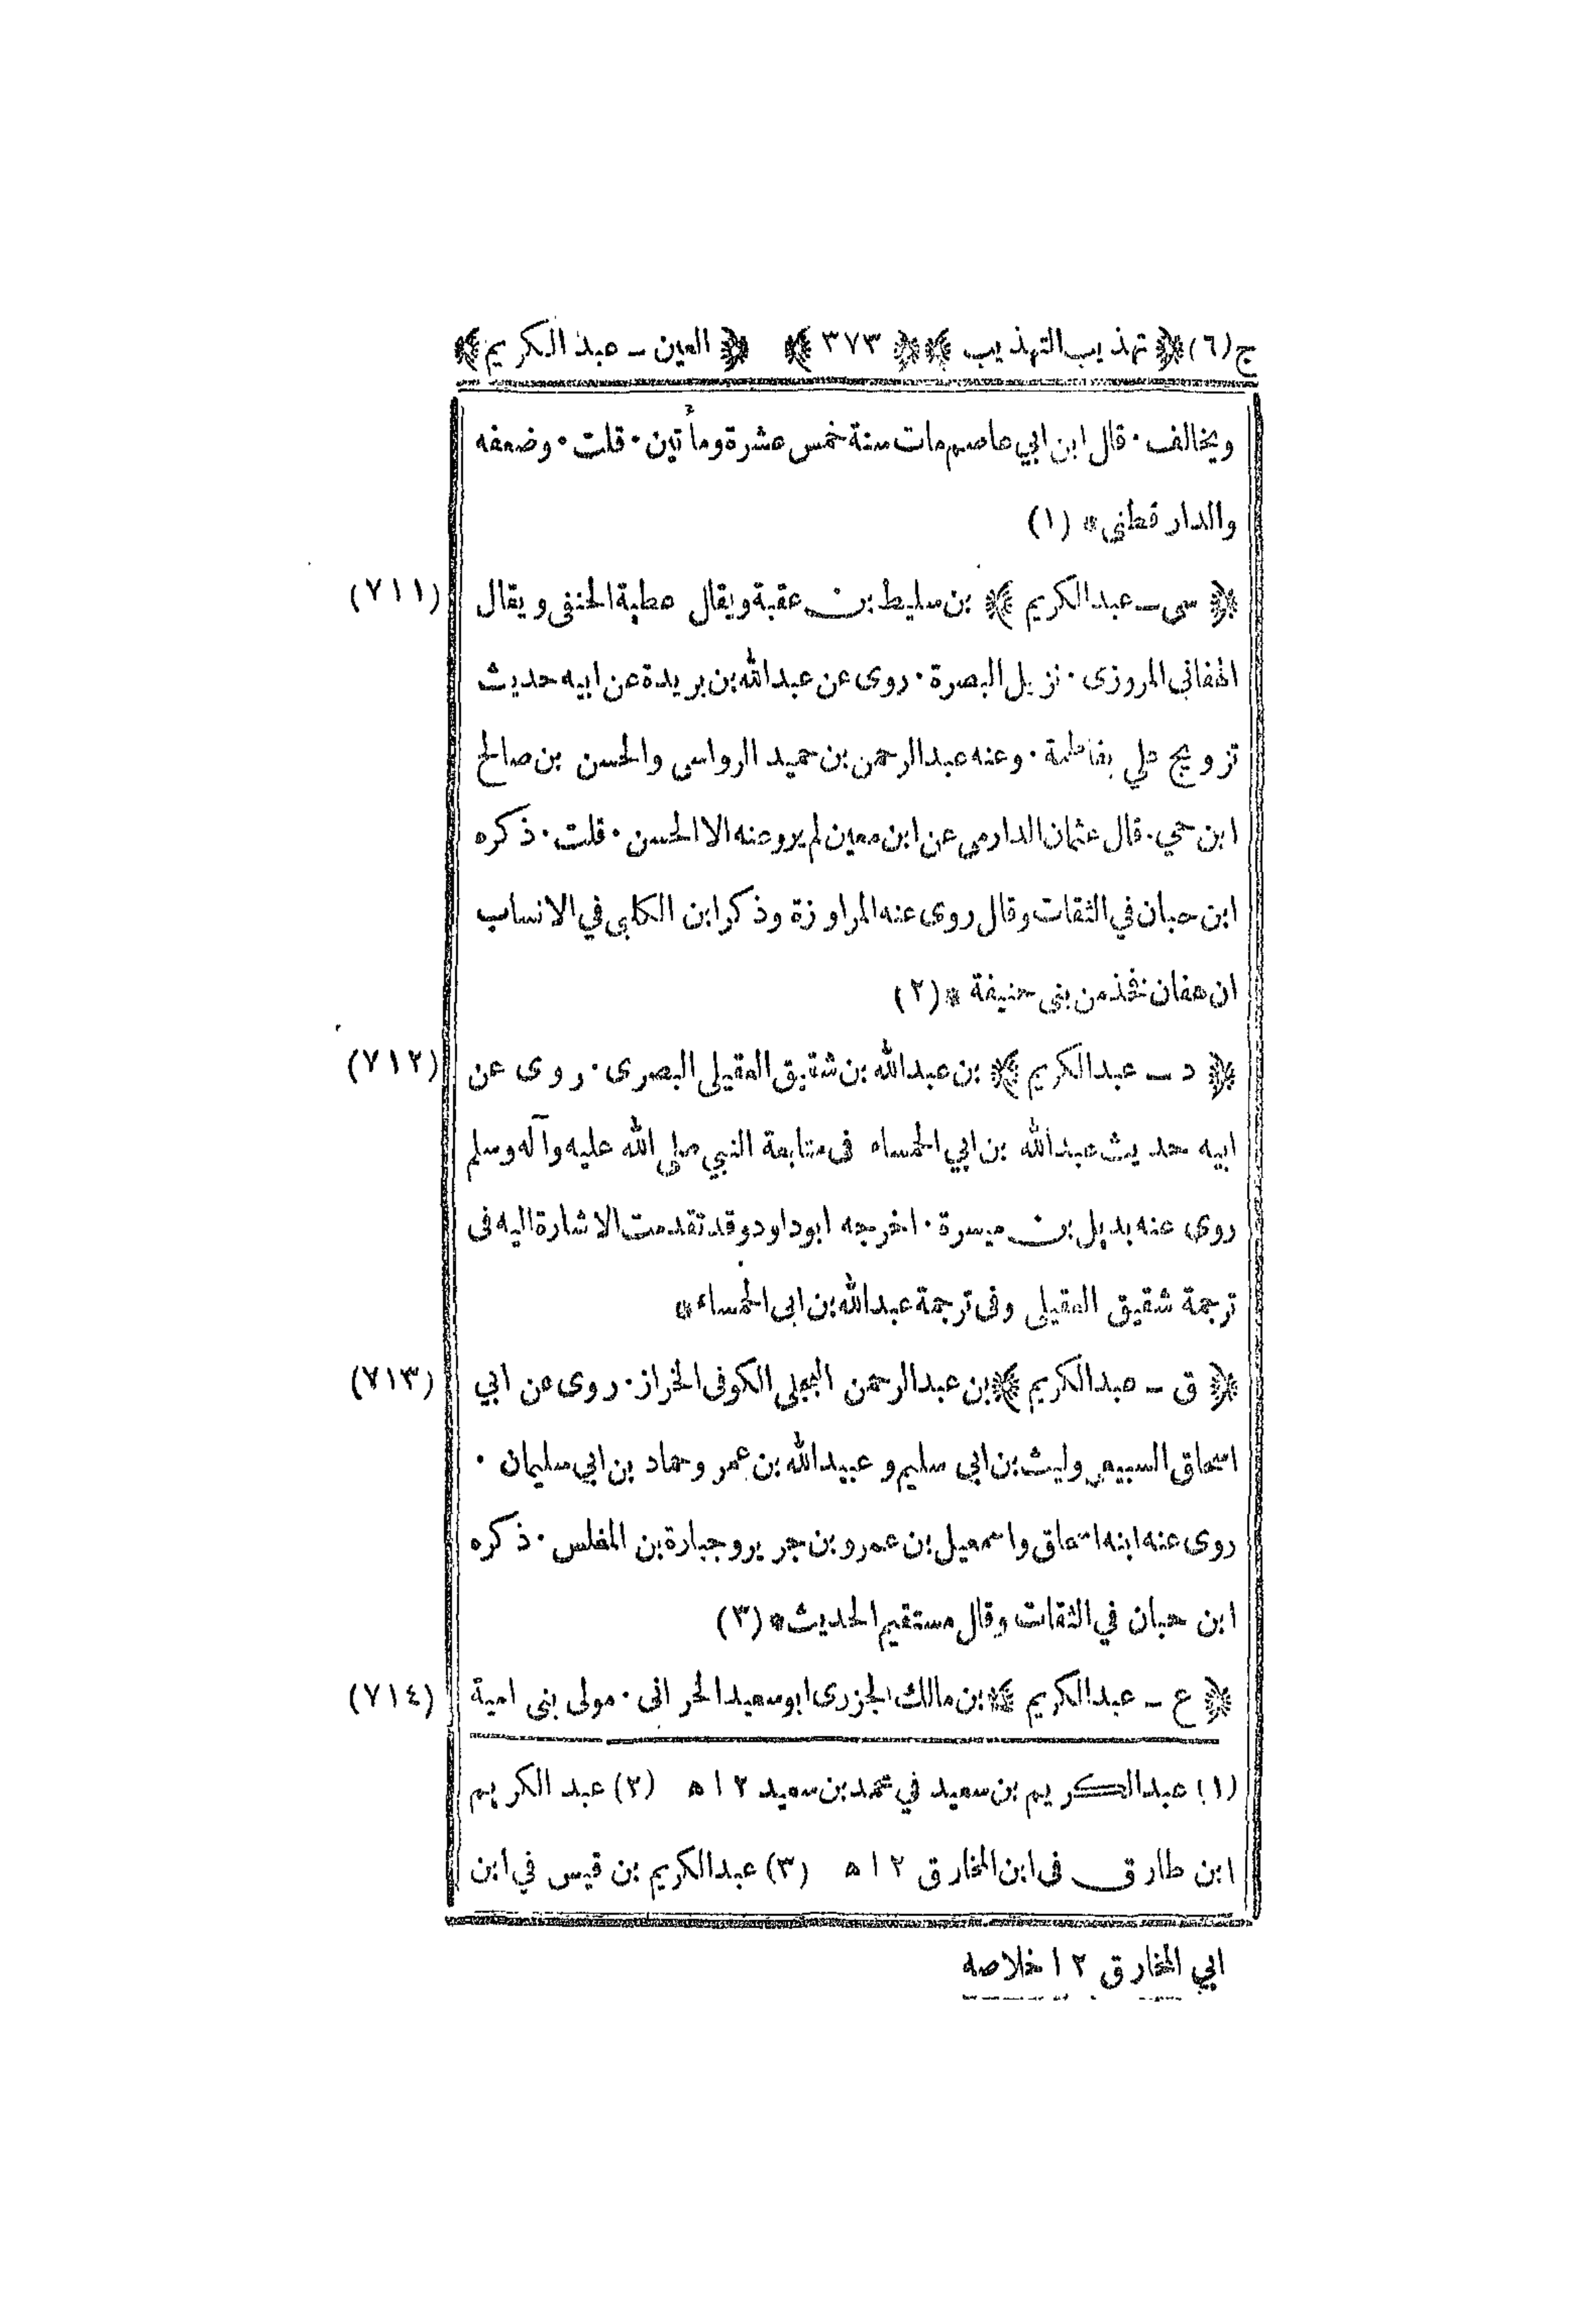 ج(٦) ﴿ تهذيب التهذيب ﴾ ﴿ ٣٧٣ ﴾ ﴿ العين ـ عبد الكريم ﴾
ويخالف ٠ قال ابن ابي عاصم مات سنة خمس عشرة ومأتين ٠ قلت ٠ وضعفه
والدارقطني * (١)
(٧١١) ﴿ سى ـ عبدالكريم ﴾ بن سليط بن عقبة ويقال عطية الحنفى ويقال
الهفاني المروزى ٠ نزيل البصرة ٠ روى عن عبدالله بن بريدة عن ابيه حديث
تزويج علي بفاطمة ٠ وعنه عبدالرحمن بن حميد الرواسى والحسن بن صالح
ابن حي ٠ قال عثمان الدارمي عن ابن معين لم يرو عنه الا الحسن ٠ قلت ٠ ذكره
ابن حبان في الثقات وقال روى عنه المراوزة وذكر ابن الكلبى في الانساب
ان هفان فخذ من بنى حنيفة * (٢)
(٧١٢) ﴿ د ـ عبدالكريم ﴾ بن عبدالله بن شقيق العقيلى البصرى ٠ روى عن
ابيه حديث عبدالله بن ابي الحمساء فى متابعة النبي صلى الله عليه وآله وسلم
روى عنه بديل بن ميسرة ٠ اخرجه ابوداود وقد تقدمت الاشارة اليه فى
ترجمة شقيق العقيلى وفى ترجمة عبدالله بن ابى الحمساء *
(٧١٣) ﴿ ق ـ عبدالكريم ﴾ بن عبدالرحمن البجلى الكوفى الخراز ٠ روى عن ابي
اسحاق السبيعي وليث بن ابى سليم و عبيدالله بن عمر وحماد بن ابي سليمان ٠
روى عنه ابنه اسحاق واسمعيل بن عمرو بن جرير وجبارة بن المغلس ٠ ذكره
ابن حبان في الثقات وقال مستقيم الحديث * (٣)
(٧١٤) ﴿ ع ـ عبدالكريم ﴾ بن مالك الجزرى ابوسعيد الحرانى ٠ مولى بنى امية
(١) عبدالكريم بن سعيد في محمد بن سعيد ١٢ ه (٢) عبد الكريم
ابن طارق فى ابن المخارق ١٢ ه (٣) عبدالكريم بن قيس في ابن
ابي المخارق ١٢ خلاصه